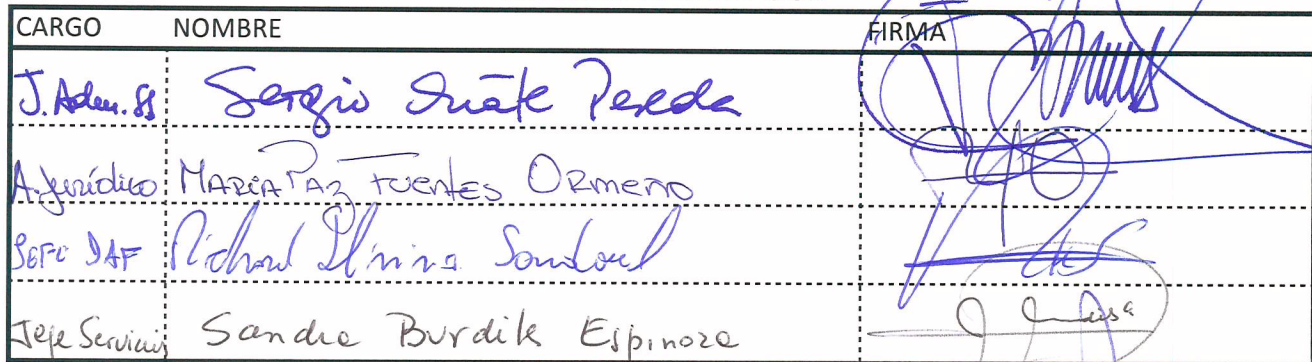 CARGO NOMBRE FIRMA
J. Adm. SS Sergio Oñate Pereda
A. Jurídico MARIA PAZ FUENTES ORMEÑO
JEFE DAF Richard Sandoval
Jefe Servicios Sandra Burdiles Espinoza